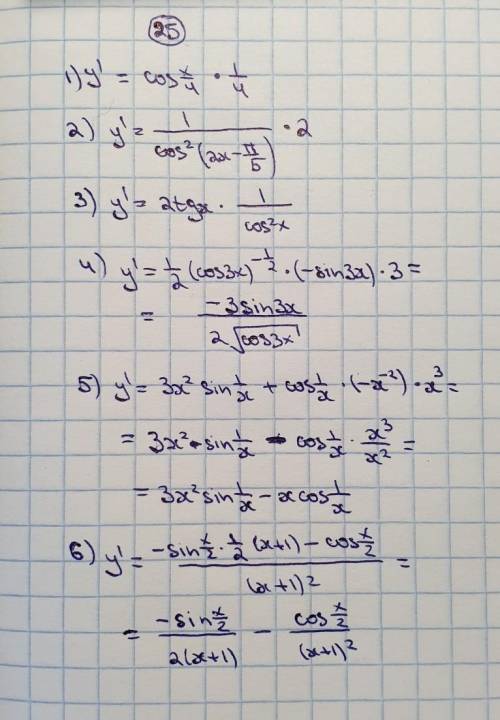 25
1) y' = cos x/4 · 1/4
2) y' = 1/cos²(2x - π/5) · 2
3) y' = 2tgx · 1/cos²x
4) y' = 1/2 (cos3x)^(-1/2) · (-sin3x) · 3 =
= -3sin3x / 2√cos3x
5) y' = 3x² sin 1/x + cos 1/x · (-x⁻²) · x³ =
= 3x² · sin 1/x - cos 1/x · x³/x² =
= 3x² sin 1/x - x cos 1/x
6) y' = (-sin x/2 · 1/2 (x+1) - cos x/2) / (x+1)² =
= -sin x/2 / 2(x+1) - cos x/2 / (x+1)²